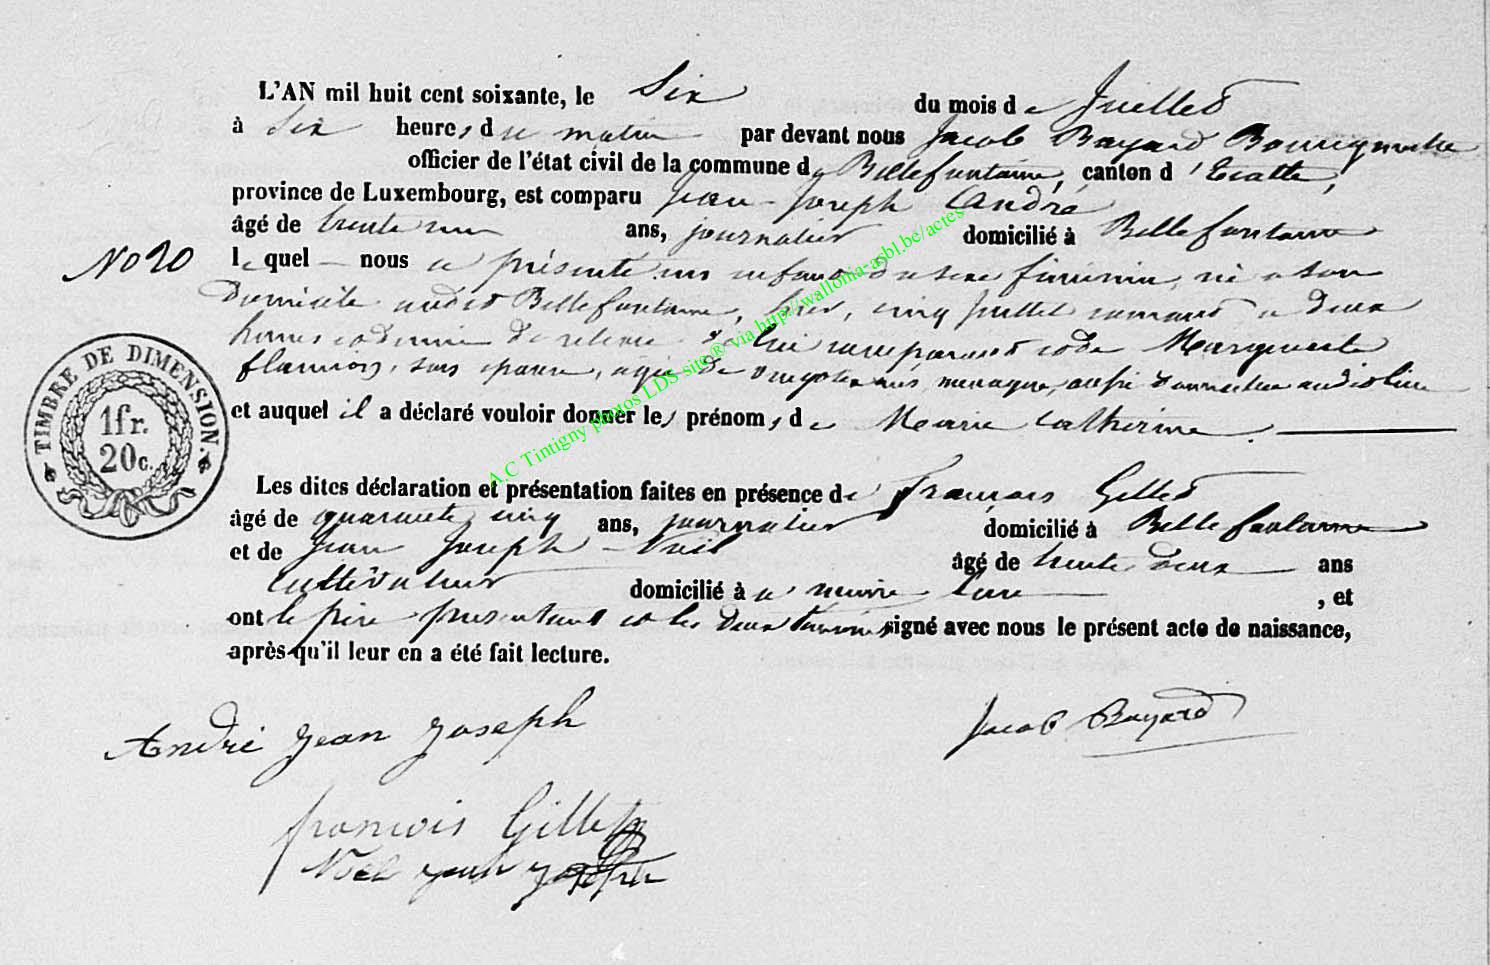 L'AN mil huit cent soixante, le Six du mois de Juillet
à Six heures, du matin par devant nous Jacob Bayard Bourgmestre
officier de l'état civil de la commune de Bellefontaine, canton d'Etalle,
province de Luxembourg, est comparu Jean Joseph André
âgé de trente un ans, journalier domicilié à Bellefontaine
No 20
lequel nous a présenté un enfant du sexe féminin, né a son
domicile audit Bellefontaine, hier, cinq juillet courant a deux
heures de relevé de lui comparant et de Marguerite
flamion, son épouse, agée de ménagère, aussi domiciliée audit lieu
et auquel il a déclaré vouloir donner les prénoms de Marie Catherine.
TIMBRE DE DIMENSION.
1fr.
20c.
Les dites déclaration et présentation faites en présence de François Gillet
âgé de quarante cinq ans, journalier domicilié à Bellefontaine
et de Jean Joseph Noël âgé de trente deux ans
cultivateur domicilié à , et
ont le père présentant et les deux témoins signé avec nous le présent acte de naissance,
après qu'il leur en a été fait lecture.
André Jean Joseph
Jacob Bayard
françois Gillet
Noël jean joseph
A.C Tintigny photos LDS site® via http://wallonia-asbl.be/actes